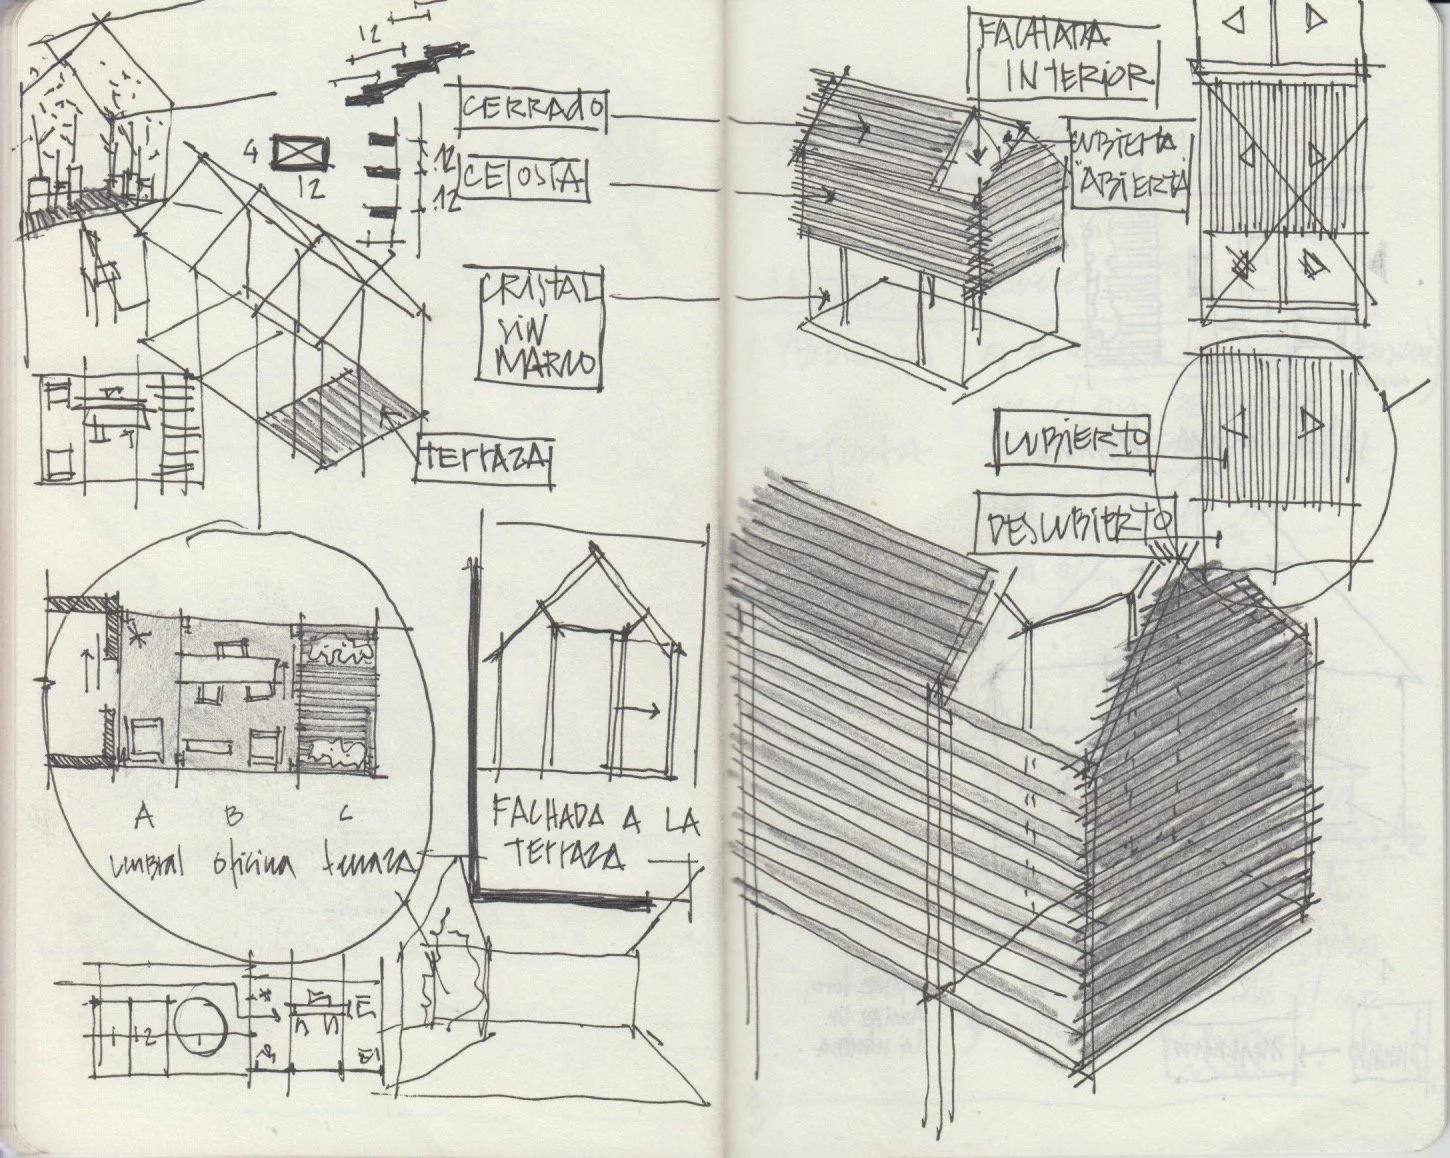 12
CERRADO
4
12
12
12
CELOSÍA
CRISTAL
SIN
MARCO
TERRAZA
A B C
umbral oficina terraza
FACHADA A LA
TERRAZA
1 2
FACHADA
INTERIOR
CUBIERTA
"ABIERTA"
CUBIERTO
DESCUBIERTO